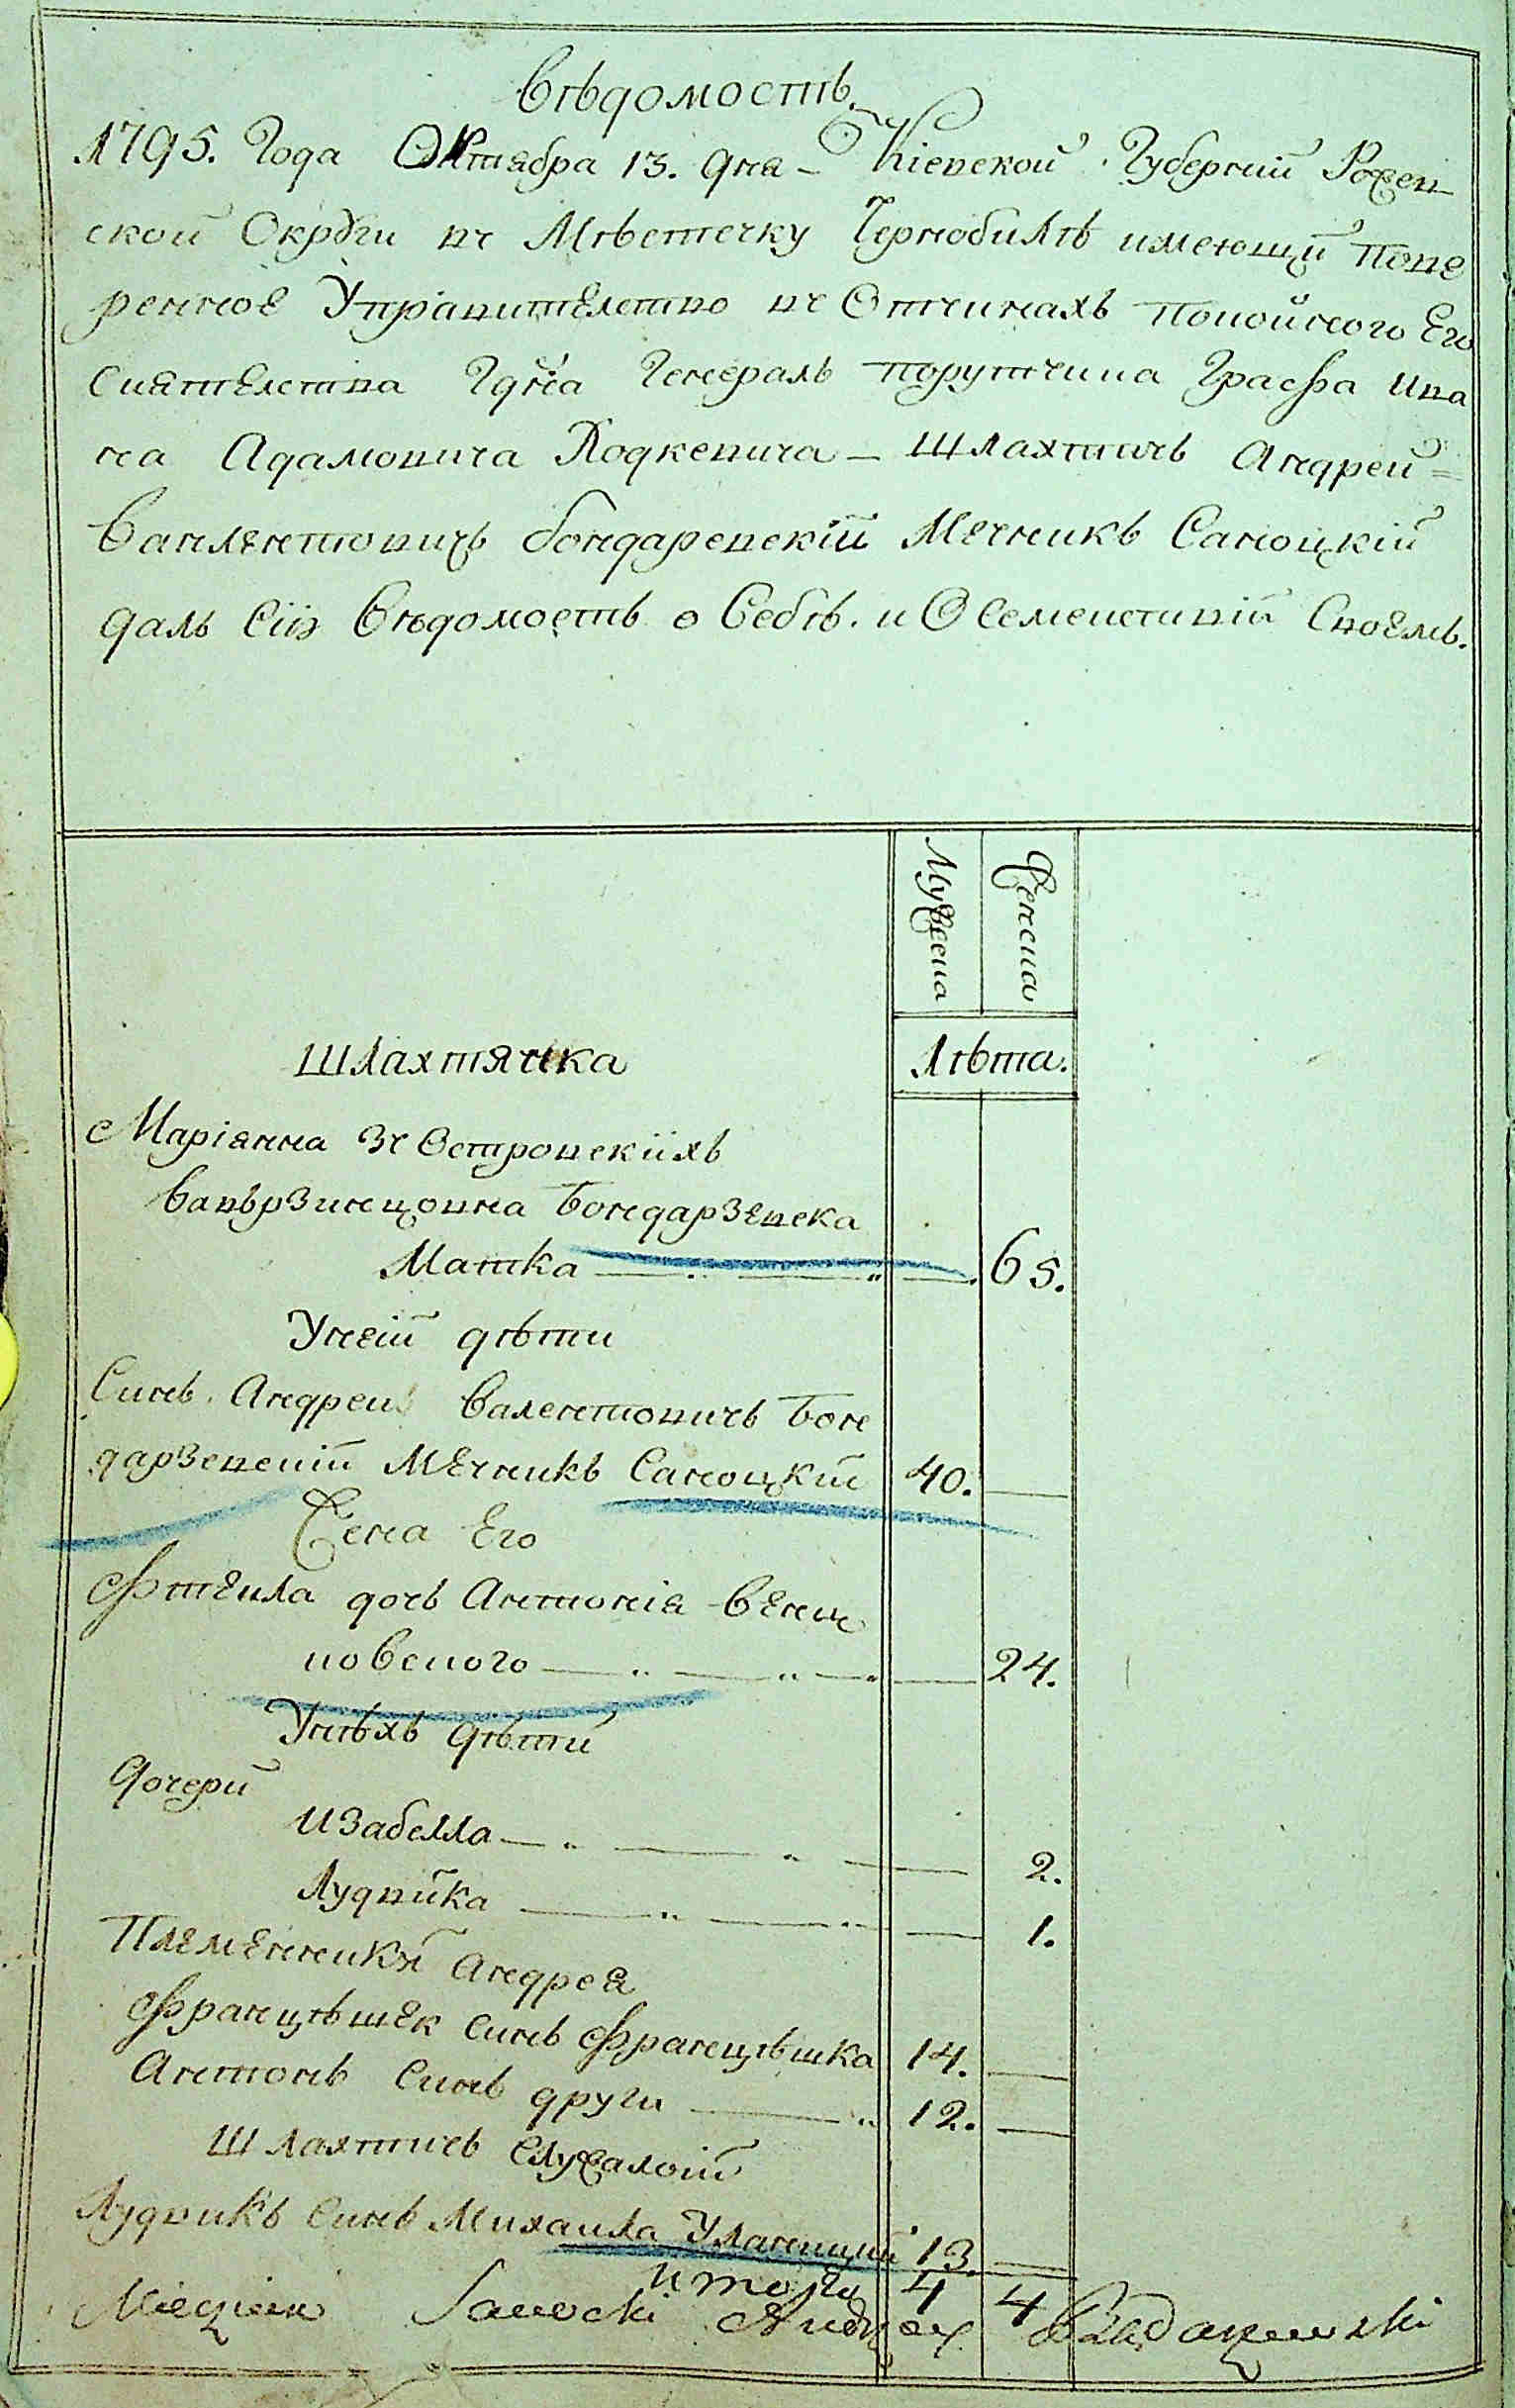 Вѣдомость
1795. Года Октября 13. дня – Кіевской Губерніи Рожев-
ской Округи въ Мѣстечку Чернобилѣ имеющи пове
ренное Управителство въ Отчинахъ покойного Его
Сиятелства Гдна Генералъ порутчика Графа Ива
на Адамовича Ходкевича – Шляхтичъ Андрей =
Валлентовичъ Бондаревскій Мечникъ Саноцкій
далъ Сію Вѣдомость о Себѣ. и О Семействій Своемъ.
Мужеска
Женска
Лѣта.
Шляхтянка
Маріянна зъ Островскіихъ
Вавързинцовна Бондарзевска
Матка 65.
У неій дѣти
Синъ. Андрей Валентовичъ Бон
дарзевскій Мечникъ Саноцкій 40.
Жена Его
Фтекла дочъ Антонія Венц
ковского 24.
У нихъ дѣти
Дочери
Изабелла 2.
Лудвика 1.
Племенники Андрея
Францѣшек Синъ Францѣшка 14.
Антонъ Синъ други 12.
Шляхтичъ Служалой
Лудвикъ Синъ Михаила Уланицкий 13.
Итого 4 4
Miecznik Sanocki Andrzey Bądarzewski